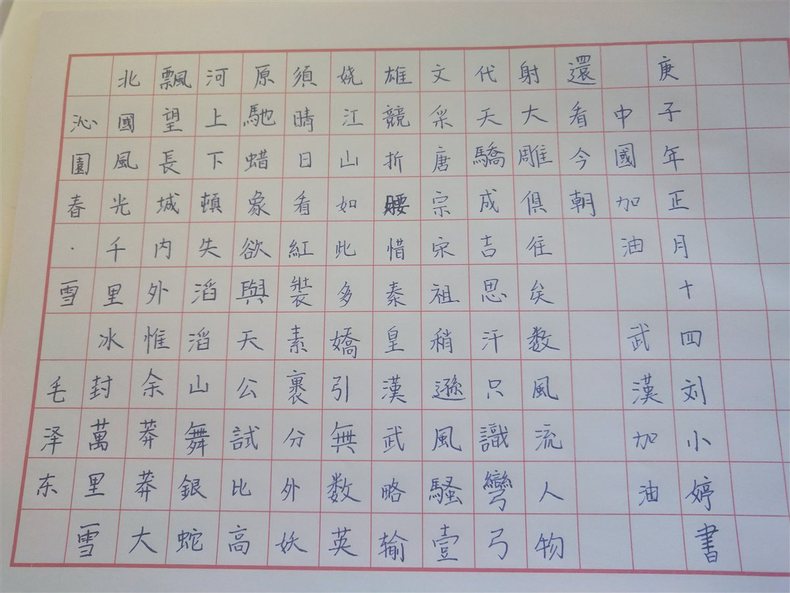 沁園春·雪 毛泽东
北國風光千里冰封萬里雪
飄望長城内外惟余莽莽大
河上下頓失滔滔山舞銀蛇
原馳蜡象欲與天公試比高
須晴日看紅裝素裹分外妖
娆江山如此多嬌引無数英
雄競折腰惜秦皇漢武略输
文采唐宗宋祖稍遜風騷壹
代天驕成吉思汗只識彎弓
射大雕俱往矣数風流人物
還看今朝
中國加油 武漢加油
庚子年正月十四刘小婷書